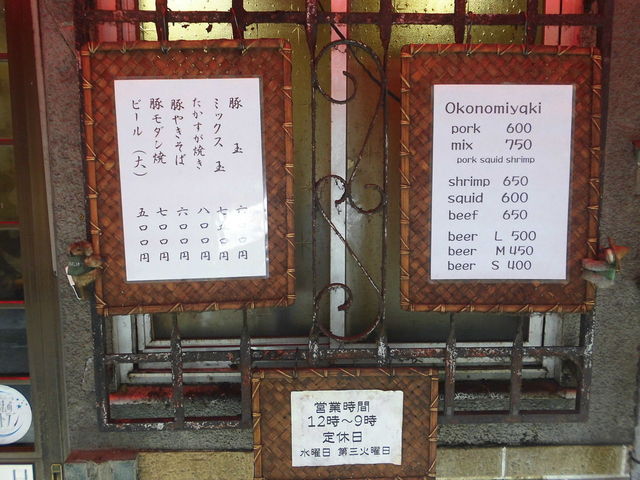 豚 玉 六〇〇円
ミックス 玉 七五〇円
たかすが焼き 八〇〇円
豚やきそば 六〇〇円
豚モダン焼 七〇〇円
ビール (大) 五〇〇円
Okonomiyaki
pork 600
mix 750
pork squid shrimp
shrimp 650
squid 600
beef 650
beer L 500
beer M 450
beer S 400
営業時間
12時～9時
定休日
水曜日 第三火曜日